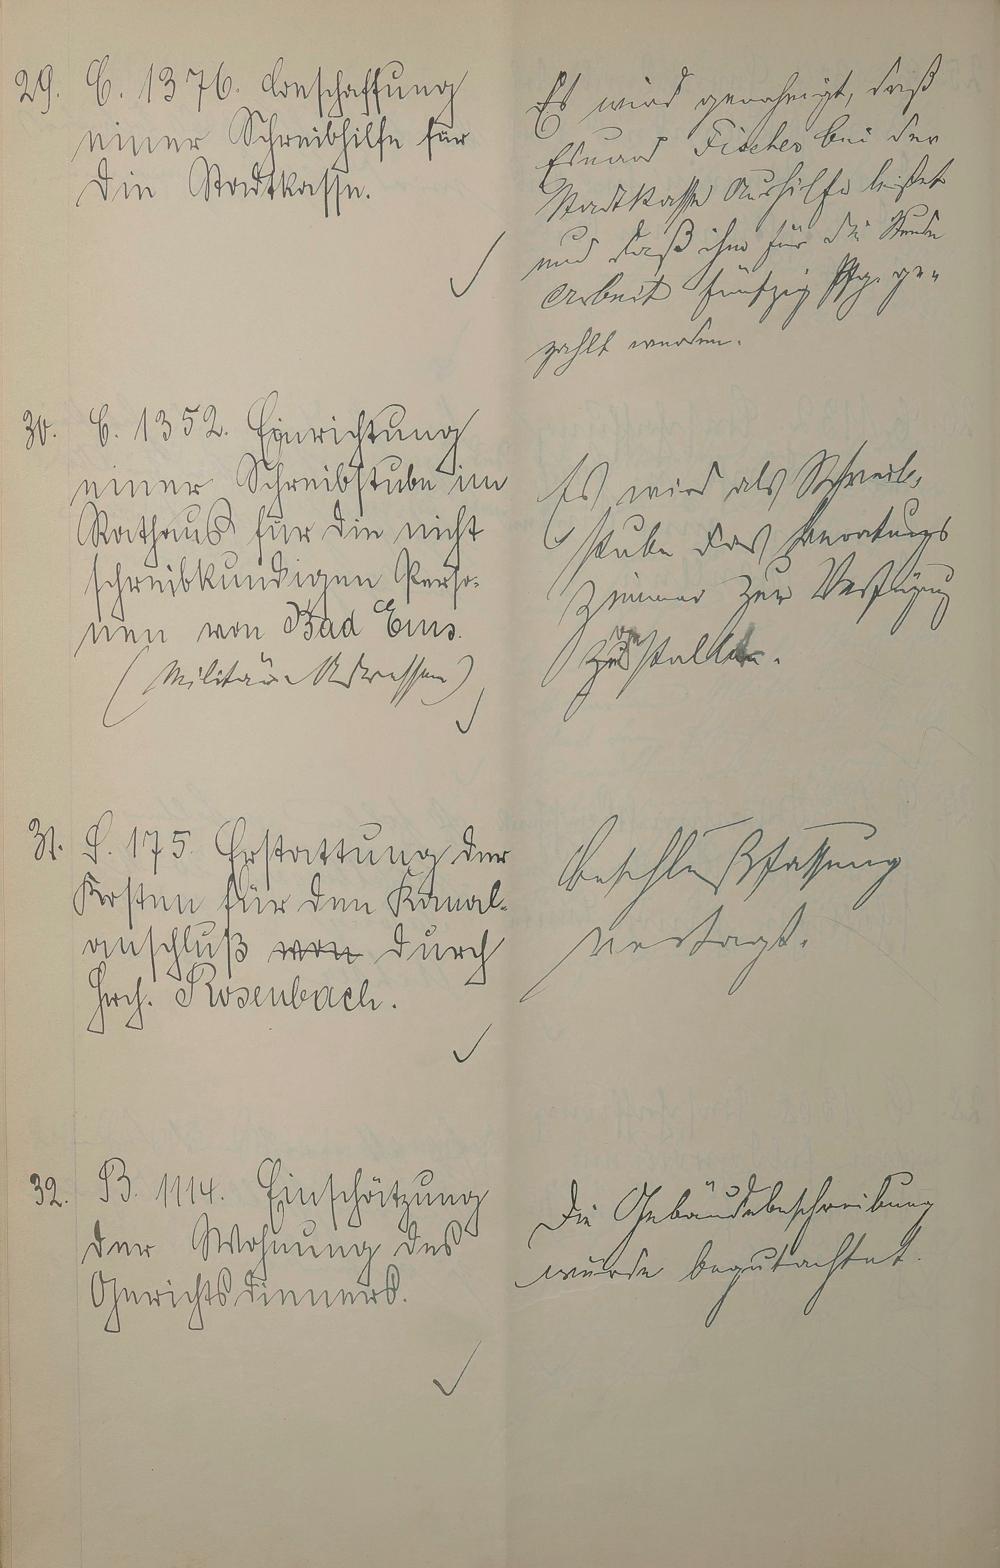 29. C. 1376. Beschaffung
einer Schreibhilfe für
die Stadtkasse.
Es wird genehmigt, daß
Eduard Fischer bei der
Stadtkasse Aushilfe leistet
und daß ihm für die Stunde
Arbeit fünfzig Pfg. ge-
zahlt werden.
30. C. 1352. Einrichtung
einer Schreibstube im
Rathaus für die nicht
schreibkundigen Perso-
nen von Bad Ems.
(Militär Adressen)
Es wird als Schreib-
stube das Beratungs
zimmer zur Verfügung
zu stellen.
31. C. 175. Erstattung der
Kosten für den Kanal-
anschluß von durch
Hrch. Rosenbach.
Beschlußfassung
vertagt.
32. B. 1114. Einschätzung
der Wohnung des
Gerichtsdieners.
Die Gebäudebeschreibung
wurde begutachtet.